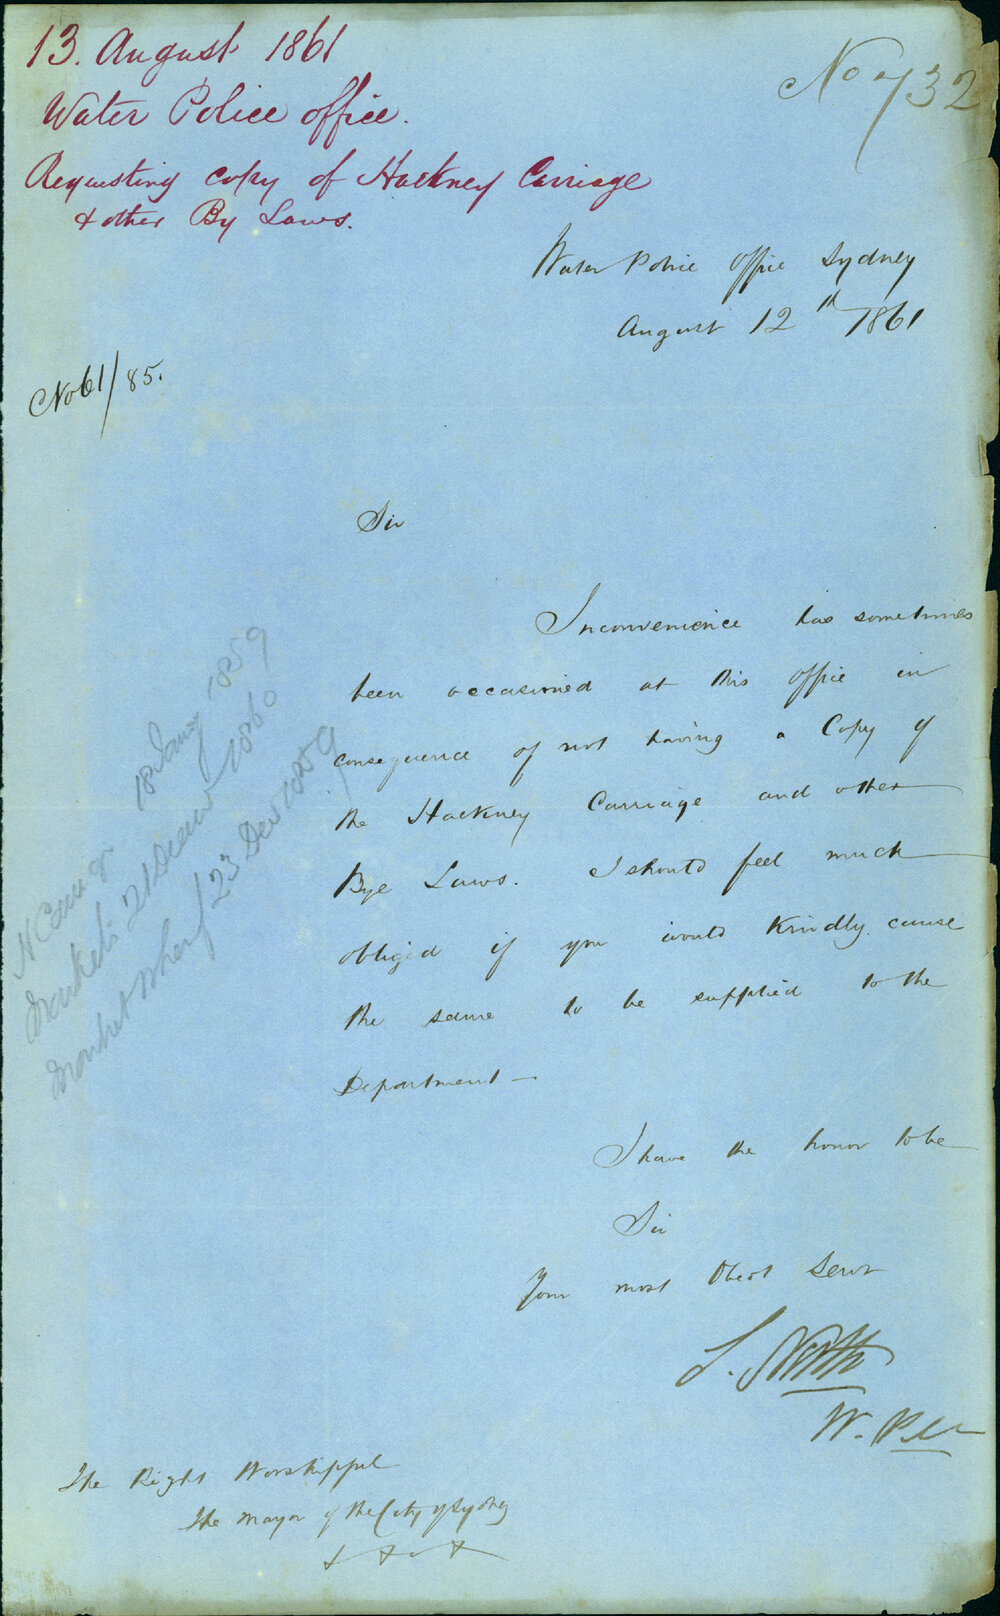 13. August 1861
Water Police office.
Requesting copy of Hackney Carriage
& other By Laws.
No 732
Water Police Office Sydney
August 12th 1861
No 61/85.
Sir
Inconvenience has sometimes
been occasioned at this office in
consequence of not having a Copy of
the Hackney Carriage and other
Bye Laws. I should feel much
obliged if you would kindly cause
the same to be supplied to the
Department —
I have the honor to be
Sir
Your most Obedt Servt
S. North
W. P.
The Right Worshipful
The Mayor of the City of Sydney
H Carriage 18 Jany 1859
Markets 21 Decem 1860
Market Wharf 23 Dec 1859